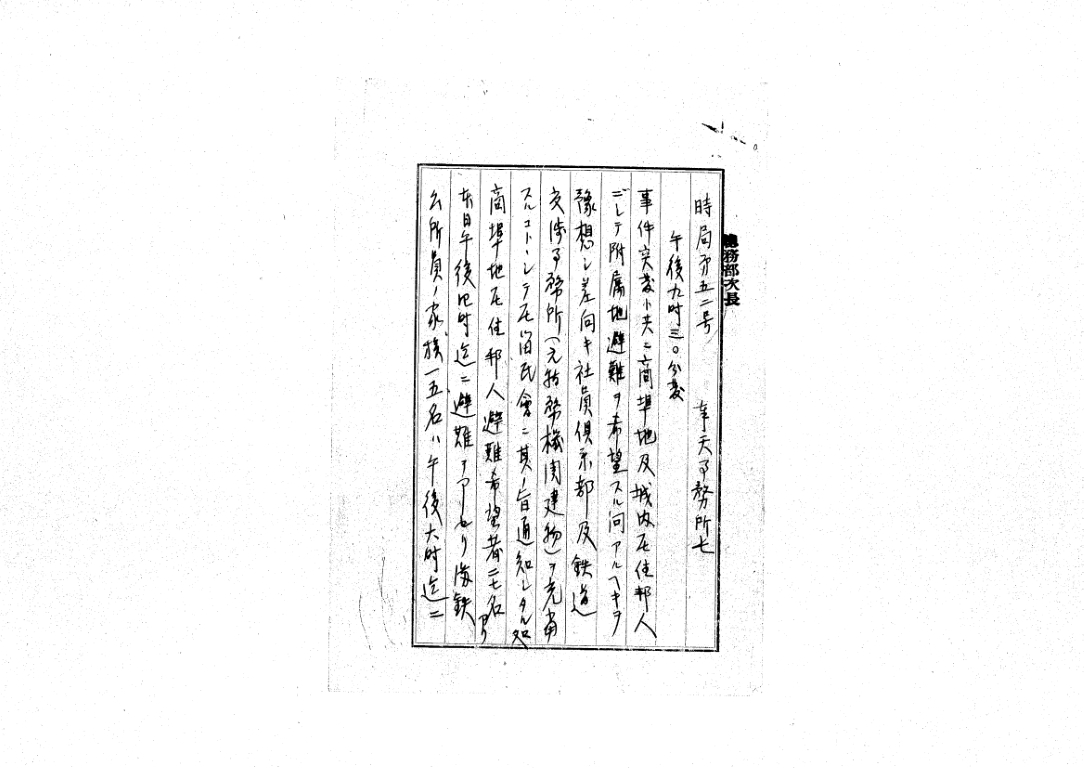 總務部次長
時局第五二号 奉天事務所七
午後九時三〇分発
事件突発ト共ニ商埠地及城内在住邦人
ニシテ附属地避難ヲ希望スル向アルヘキヲ
豫想シ差向キ社員倶楽部及鉄道
交渉事務所(元特務機関建物)ヲ充当
スルコトトシテ在留民會ニ其ノ旨通知シタル処
商埠地在住邦人避難希望者二七名アリ
本日午後四時迄ニ避難ヲ
公所員ノ家族一五名ハ午後六時迄ニ